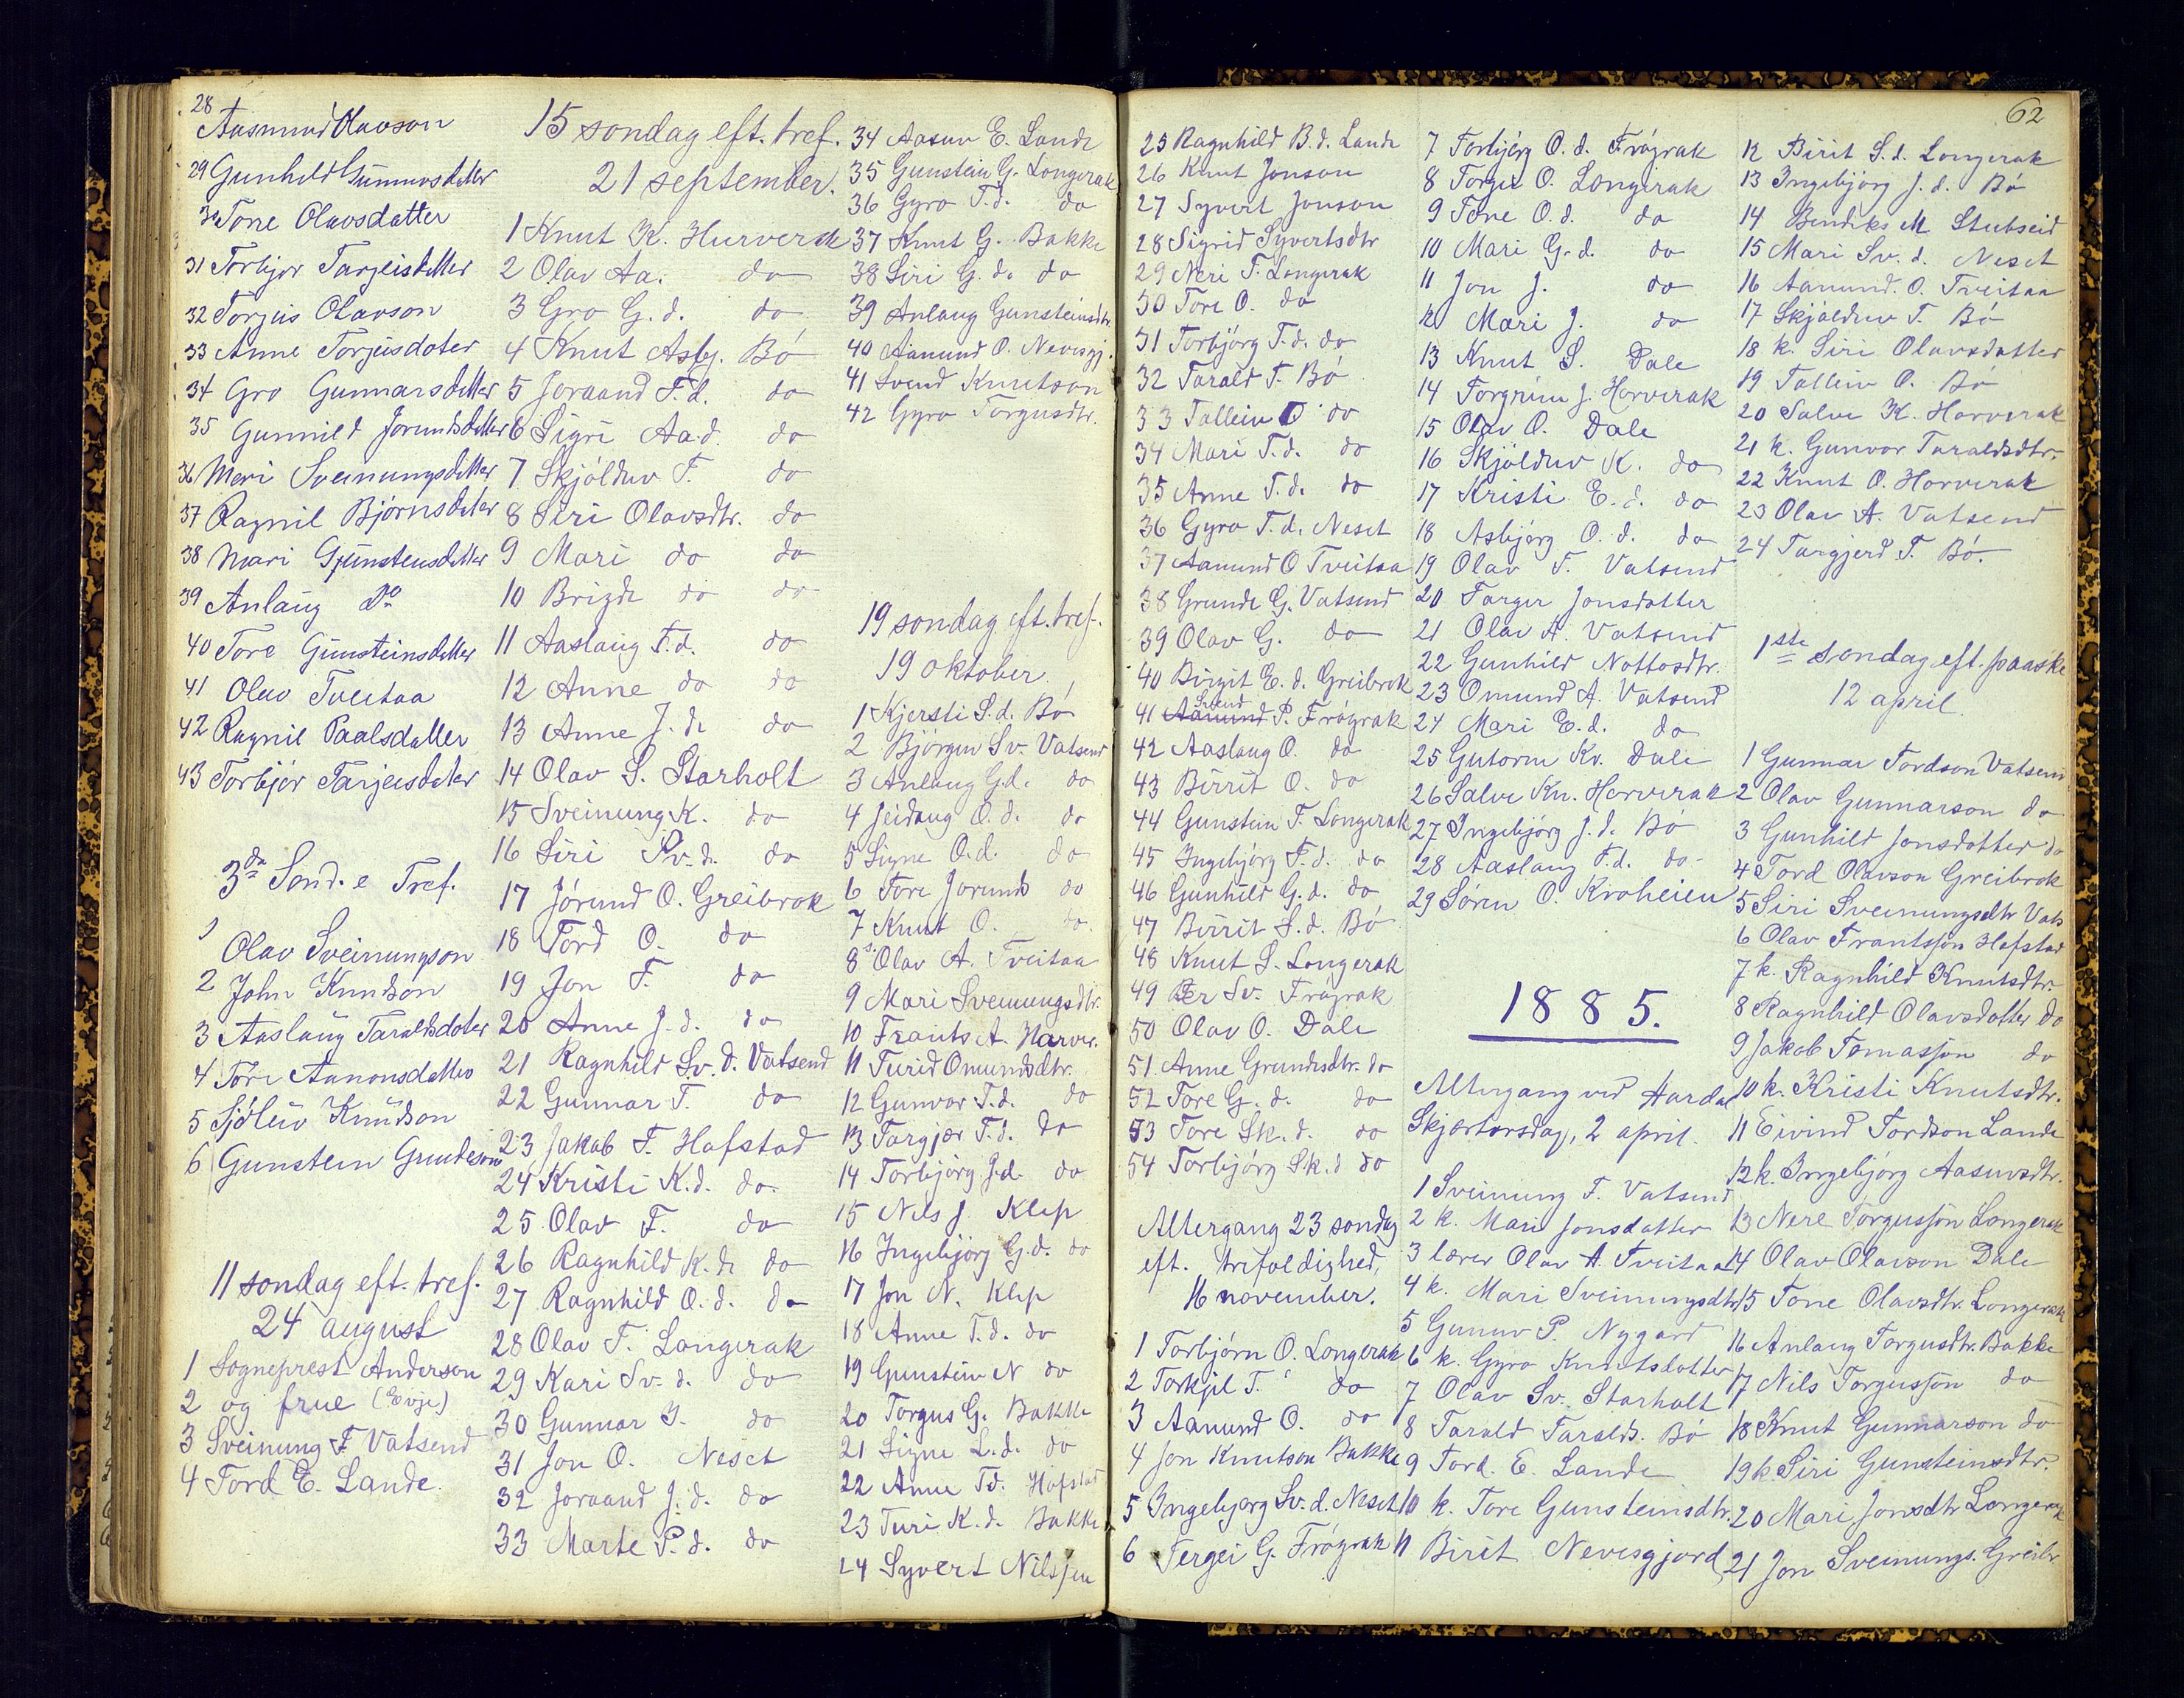 28
Aasmund Olavson
29 Gunhild Gunnersdatter
30 Tone Olavsdatter
31 Torbjør Tarjeisdatter
32 Torjus Olavson
33 Anne Torjusdoter
34 Gro Gunnarsdatter
35 Gunnild Jorundsdatter
36 Meri Sveinungsdatter
37 Ragnil Bjørnsdater
38 Mari Gunstensdatter
39 Anlaug do
40 Tore Gunsteinsdatter
41 Olav Tveitaa
42 Ragnil Paalsdatter
43 Torbjør Tarjeisdater
3da Sønd. e Tref.
1
Olav Sveinungson
2 John Knudson
3 Aaslaug Taraldsdoter
4 Tore Aanonsdatter
5 Sjøluv Knudson
6 Gunstein Grundeson
11 sondag eft. tref.
24 august
1 Sogneprest Anderson
2 og frue (Evje)
3 Sveinung T Vatsend
4 Tord E. Lande.
15 sondag eft. tref.
21 september.
1 Knut K. Hurverak
2 Olav Aa. do
3 Gro G. d. do
4 Knut Asbj. Bó
5 Joraand T. d. do
6 Sigri Aa.d. do
7 Skjólduv T. do
8 Siri Olavsdtr. do
9 Mari do do
10 Brigde do do
11 Aaslaug T. d. do
12 Anne do do
13 Anne J. d. do
14 Olav S. Starholt
15 Sveinung K. do
16 Siri Sv. d. do
17 Jórund O. Greibrok
18 Tord O. do
19 Jon T. do
20 Anne J. d. do
21 Ragnhild Sv. d. Vatsend
22 Gunnar T. do
23 Jakob T. Hafstad
24 Kristi K. d. do.
25 Olav F. do
26 Ragnhild K. d. do
27 Ragnhild O. d. do
28 Olav T. Longerak
29 Kari Sv. d. do
30 Gunnar T. do
31 Jon O. Neset
32 Joraand J. d. do
33 Marte P. d. do
34 Aasuv E. Lande
35 Gunstein G. Longerak
36 Gyro T. d. do
37 Knut G. Bakke
38 Siri G. d. do
39 Anlaug Gunsteinsdtr.
40 Aamund O. Nevesgj.
41 Svend Knutson
42 Gyro Torgusdtr.
19 sondag eft. tref.
19 oktober.
1 Kjersti S. d. Bó
2 Bjórgun Sv. Vatsend
3 Anlaug G. d. do
4 Jeidaug O. d. do
5 Signe O. d. do
6 Tore Jorunds do
7 Knut O. do
8 Olav A. Tveitaa
9 Mari Sveinungsdtr.
10 Frants A. Harver.
11 Turid Omundsdtr.
12 Gunvor T. d. do
13 Targjær T. d. do
14 Torbjórg J. d. do
15 Nils J. Klep
16 Ingebjórg G. d. do
17 Jon N. Klep
18 Anne T. d. do
19 Gunstein N do
20 Torgus G. Bakke
21 Signe L. d. do
22 Anne T d. Hofstad
23 Turi K. d. Bakke
24 Syvert Nilssen
62
25 Ragnhild B. d. Lande
26 Knut Jonson
27 Syvert Jonson
28 Sigrid Syvertsdtr
29 Neri T. Longerak
30 Tore O. do
31 Torbjörg T. d. do
32 Tarald T. Bó
33 Tallein O. do
34 Mari T. d. do
35 Anne T. d. do
36 Gyro T. d. Neset
37 Aamund O Tveitaa
38 Grunde G. Vatsend
39 Olav G. do
40 Birgit E. d. Greibrok
Svend
41 Aamund P. Frógrak
42 Aaslaug O. do
43 Birrit O. do
44 Gunstein T. Longerak
45 Ingebjórg T. d. do
46 Gunhild G. d. do
47 Birrit S. d. Bó
48 Knut S. Longerak
49 Per Sv. Frógrak
50 Olav O. Dale
51 Anne Grundesdtr. do
52 Tore G. d. do
53 Tore Sk. d. do
54 Torbjórg Sk. d do
Altergang 23 sondag
eft. trefoldighed,
16 november.
1 Torbjórn O. Longerak
2 Torkjel T. do
3 Aamund O. do
4 Jon Knutson Bakke
5 Ingebjorg Sv. d. Neset
6 Tergei G. Frógrak
7 Torbjérg O. d. Frógrak
8 Torger O. Longerak
9 Tone O. d. do
10 Mari G. d. do
11 Jon J. do
12 Mari J. do
13 Knut S. Dale
14 Torgrim J. Horverak
15 Olav O. Dale
16 Skjólduv K. do
17 Kristi E. d. do
18 Asbjórg O. d. do
19 Olav T. Vatsend
20 Targer Jonsdatter
21 Olav A. Vatsend
22 Gunhild Nottosdtr.
23 Omund A. Vatsend
24 Mari E. d. do
25 Gutorm Kr. Dale
26 Salve Kn. Horverak
27 Ingebjórg J. d. Bó
28 Aaslaug T. d. do
29 Søren O. Kroheien
1885.
Altergang ved Aardal
Skjærtorsdag, 2 april.
1 Sveinung T. Vatsend
2 k. Mari Jonsdatter
3 lærer Olav A. Tveitaa
4 k. Mari Sveinungsdtr
5 Gunuv P. Nygard
6 k. Gyro Knutsdatter
7 Olav Sv. Starholt
8 Tarald Taralds. Bó
9 Tord. E. Lande
10 k. Tore Gunsteinsdtr.
11 Birit Nevesgjord
12 Birit S. d. Longerak
13 Ingebjörg J. d. Bó
14 Bendiks M. Stubseid
15 Mari Sv. d. Neset
16 Aamund. O. Tveitaa
17 Skjólduv T. Bó
18 k. Siri Olavsdatter
19 Tallein O. Bó
20 Salve K. Horverak
21 k. Gunvor Taraldsdtr.
22 Knut O. Horverak
23 Olav A. Vatsend
24 Targjerd T. Bó.
1ste sondag eft. paaske
12 april.
1 Gunnar Tordson Vatsend
2 Olav Gunnarson do
3 Gunhild Jonsdatter do
4 Tord Olavson Greibrok
5 Siri Sveinungsdtr Vats
6 Olav Frantsson Hafstad
7 k. Ragnhild Knutsdtr.
8 Ragnhild Olavsdatter do
9 Jakob Tomasson do
10 k. Kristi Knutsdtr.
11 Eivind Tordson Lande
12 k. Ingebjórg Aasuvsdtr.
13 Nere Torgusson Longerak
14 Olav Olavson Dale
15 Tone Olavsdtr. Longerak
16 Anlaug Torgusdtr. Bakke
17 Nils Torgusson do
18 Knut Gunnarson do
19 k Siri Gunsteinsdtr.
20 Mari Jonsdtr Longerak
21 Jon Sveinungs. Greibr.